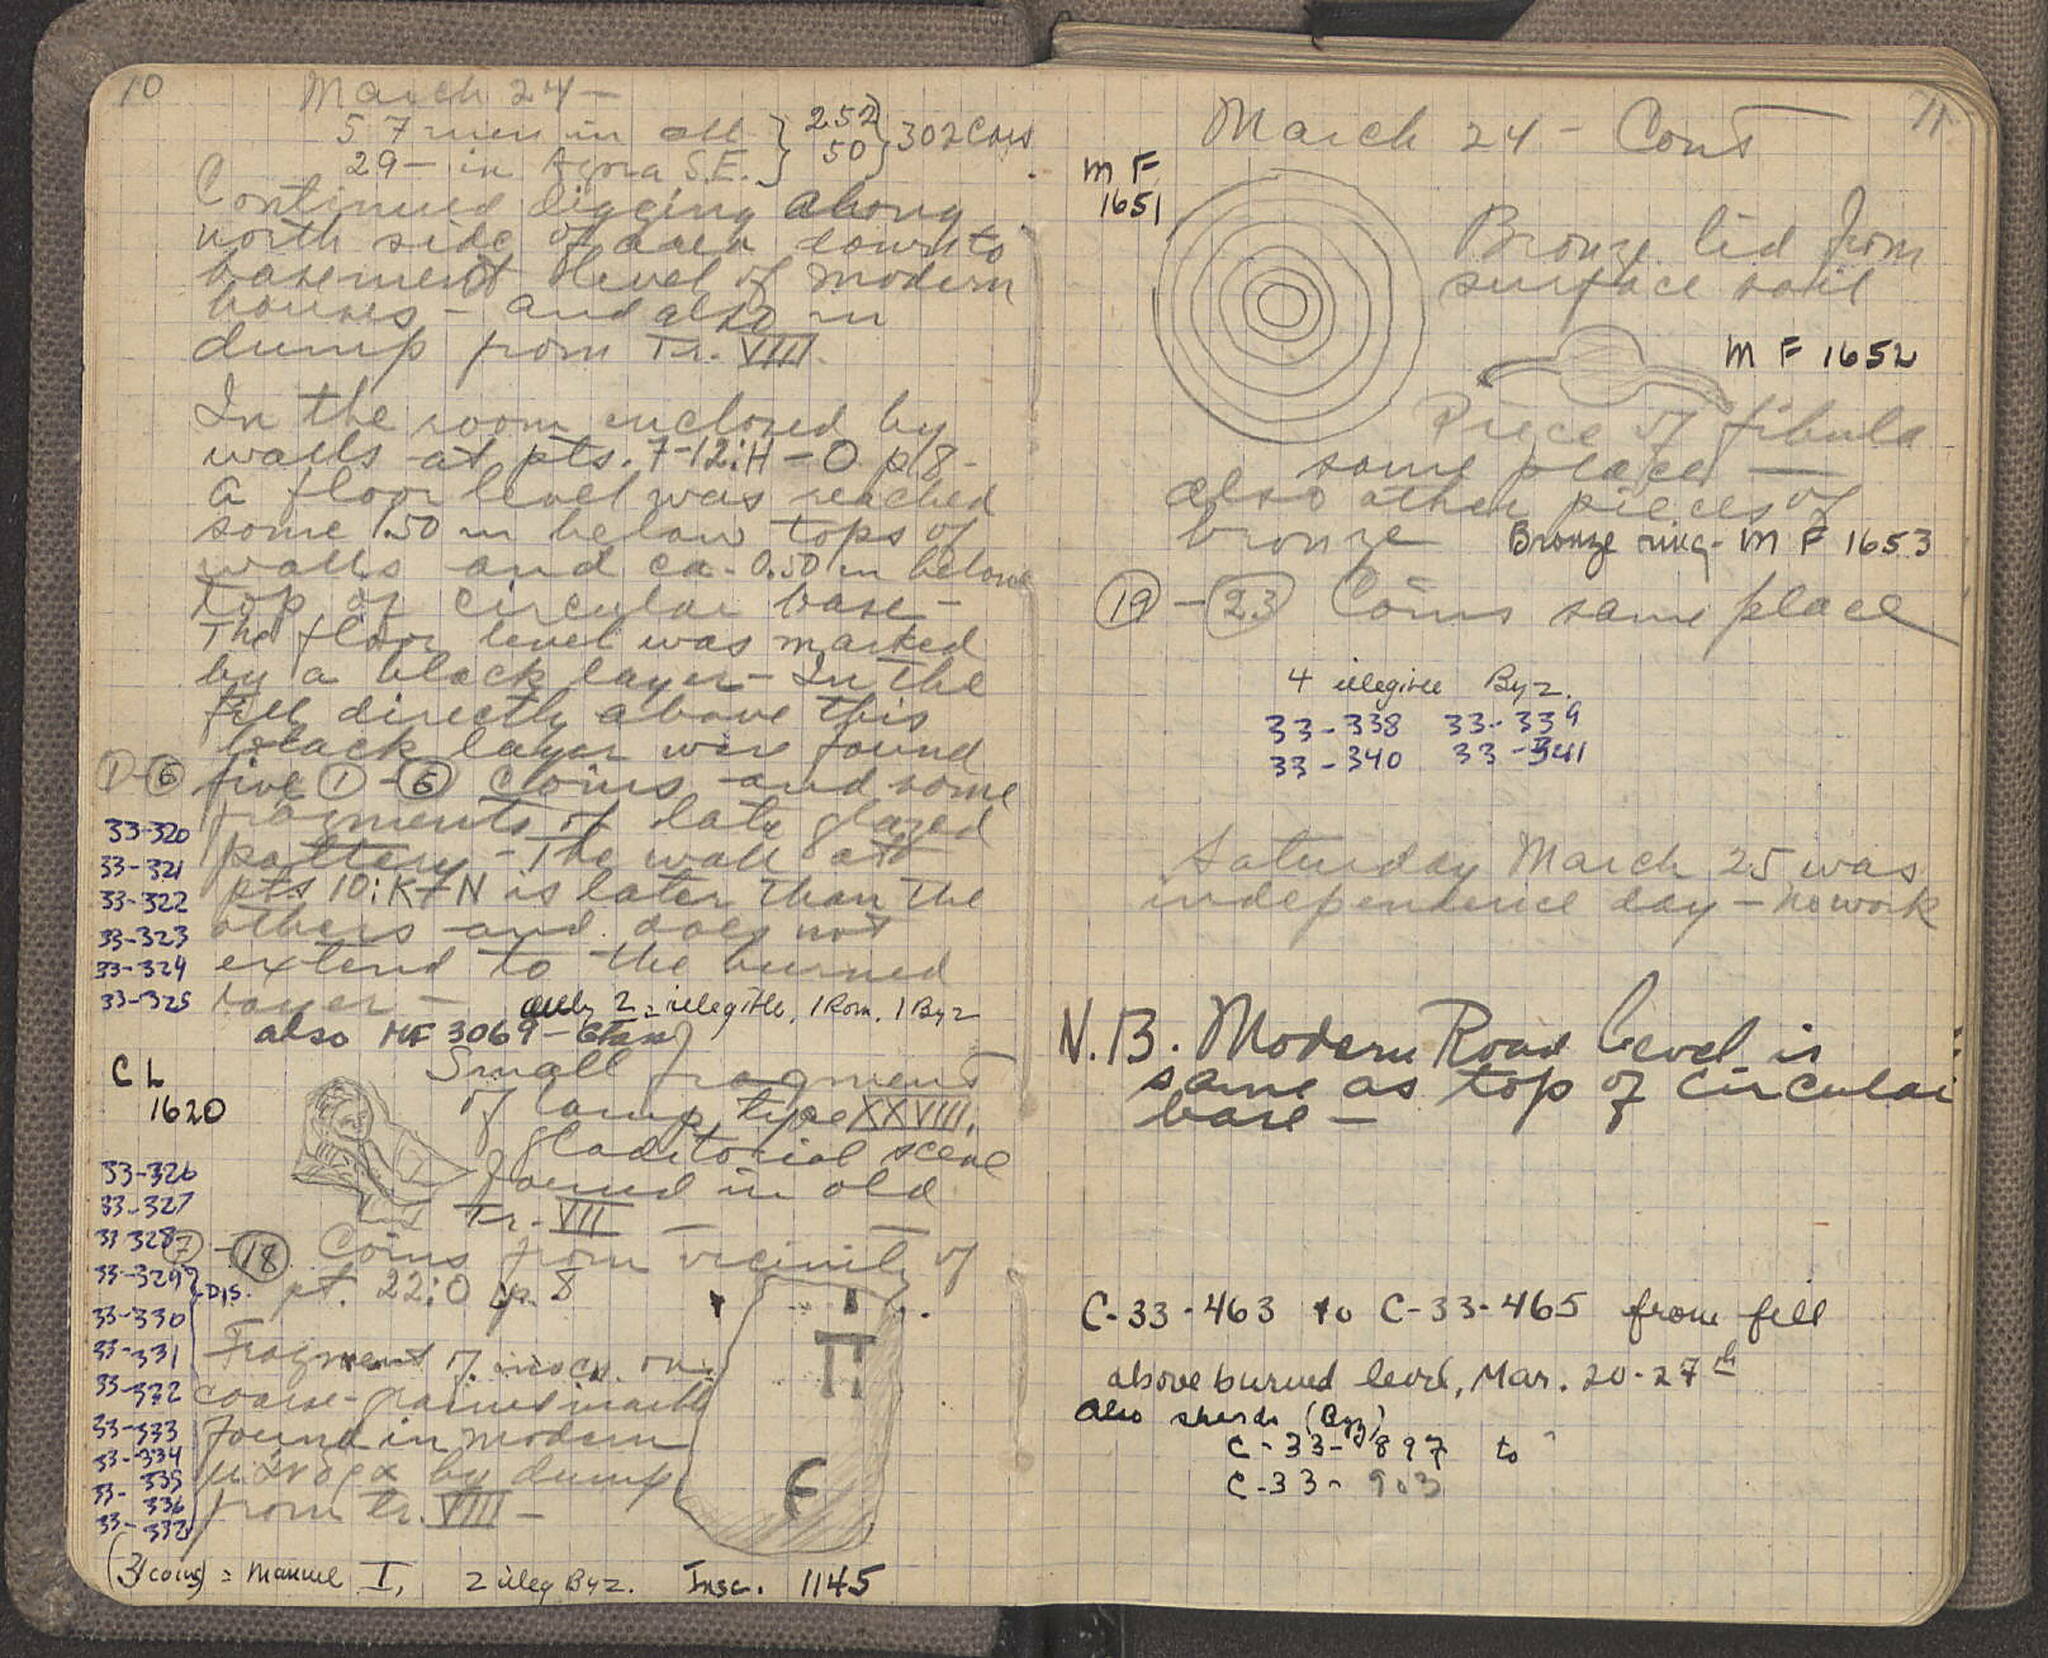 10
March 24 —
57 men in all } 252 } 302 Cars
29 — in Agora S.E. } 50
Continued digging along
north side of area down to
basement level of modern
houses — and also in
dump from Tr. VIII.
In the room enclosed by
walls at pts. 7-12:H-O p 8-
a floor level was reached
some 1.50 m below tops of
walls and ca. 0.50 m below
top of circular base —
The floor level was marked
by a black layer — In the
fill directly above this
black layer were found
1-6 five 1-6 coins and some
fragments of late glazed
pottery — The wall at
pts 10:K-N is later than the
others and does not
extend to the burned
layer —
33-320
33-321
33-322
33-323
33-324
33-325
only 2 = illegible, 1 Rom. 1 Byz
also MF 3069 — Glass
CL
1620
Small fragment
of lamp type XXVIII,
gladitorial scene
found in old
Tr. VII —
7-18 Coins from vicinity of
pt. 22:O p. 8
33-326
33-327
33-328
33-329
33-330
33-331
33-332
33-333
33-334
33-335
33-336
33-337
Dis.
Fragment of inscr. on
coarse-grained marble
found in modern
μάνδρα by dump
from tr. VIII —
Π
Ε
(3 coins) = Manuel I, 2 illeg Byz. Insc. 1145
11
March 24 — Cont
MF
1651
Bronze lid from
surface soil
MF 1652
Piece of fibula
same place —
also other pieces of
bronze Bronze ring - MF 1653
19 - 23 Coins same place
4 illegible Byz.
33-338 33-339
33-340 33-341
Saturday March 25 was
independence day — no work
N.B. Modern Road level is
same as top of circular
base —
C-33-463 to C-33-465 from fill
above burned level, Mar. 20-27th
Also sherds (Byz)
C-33-897 to
C-33-903